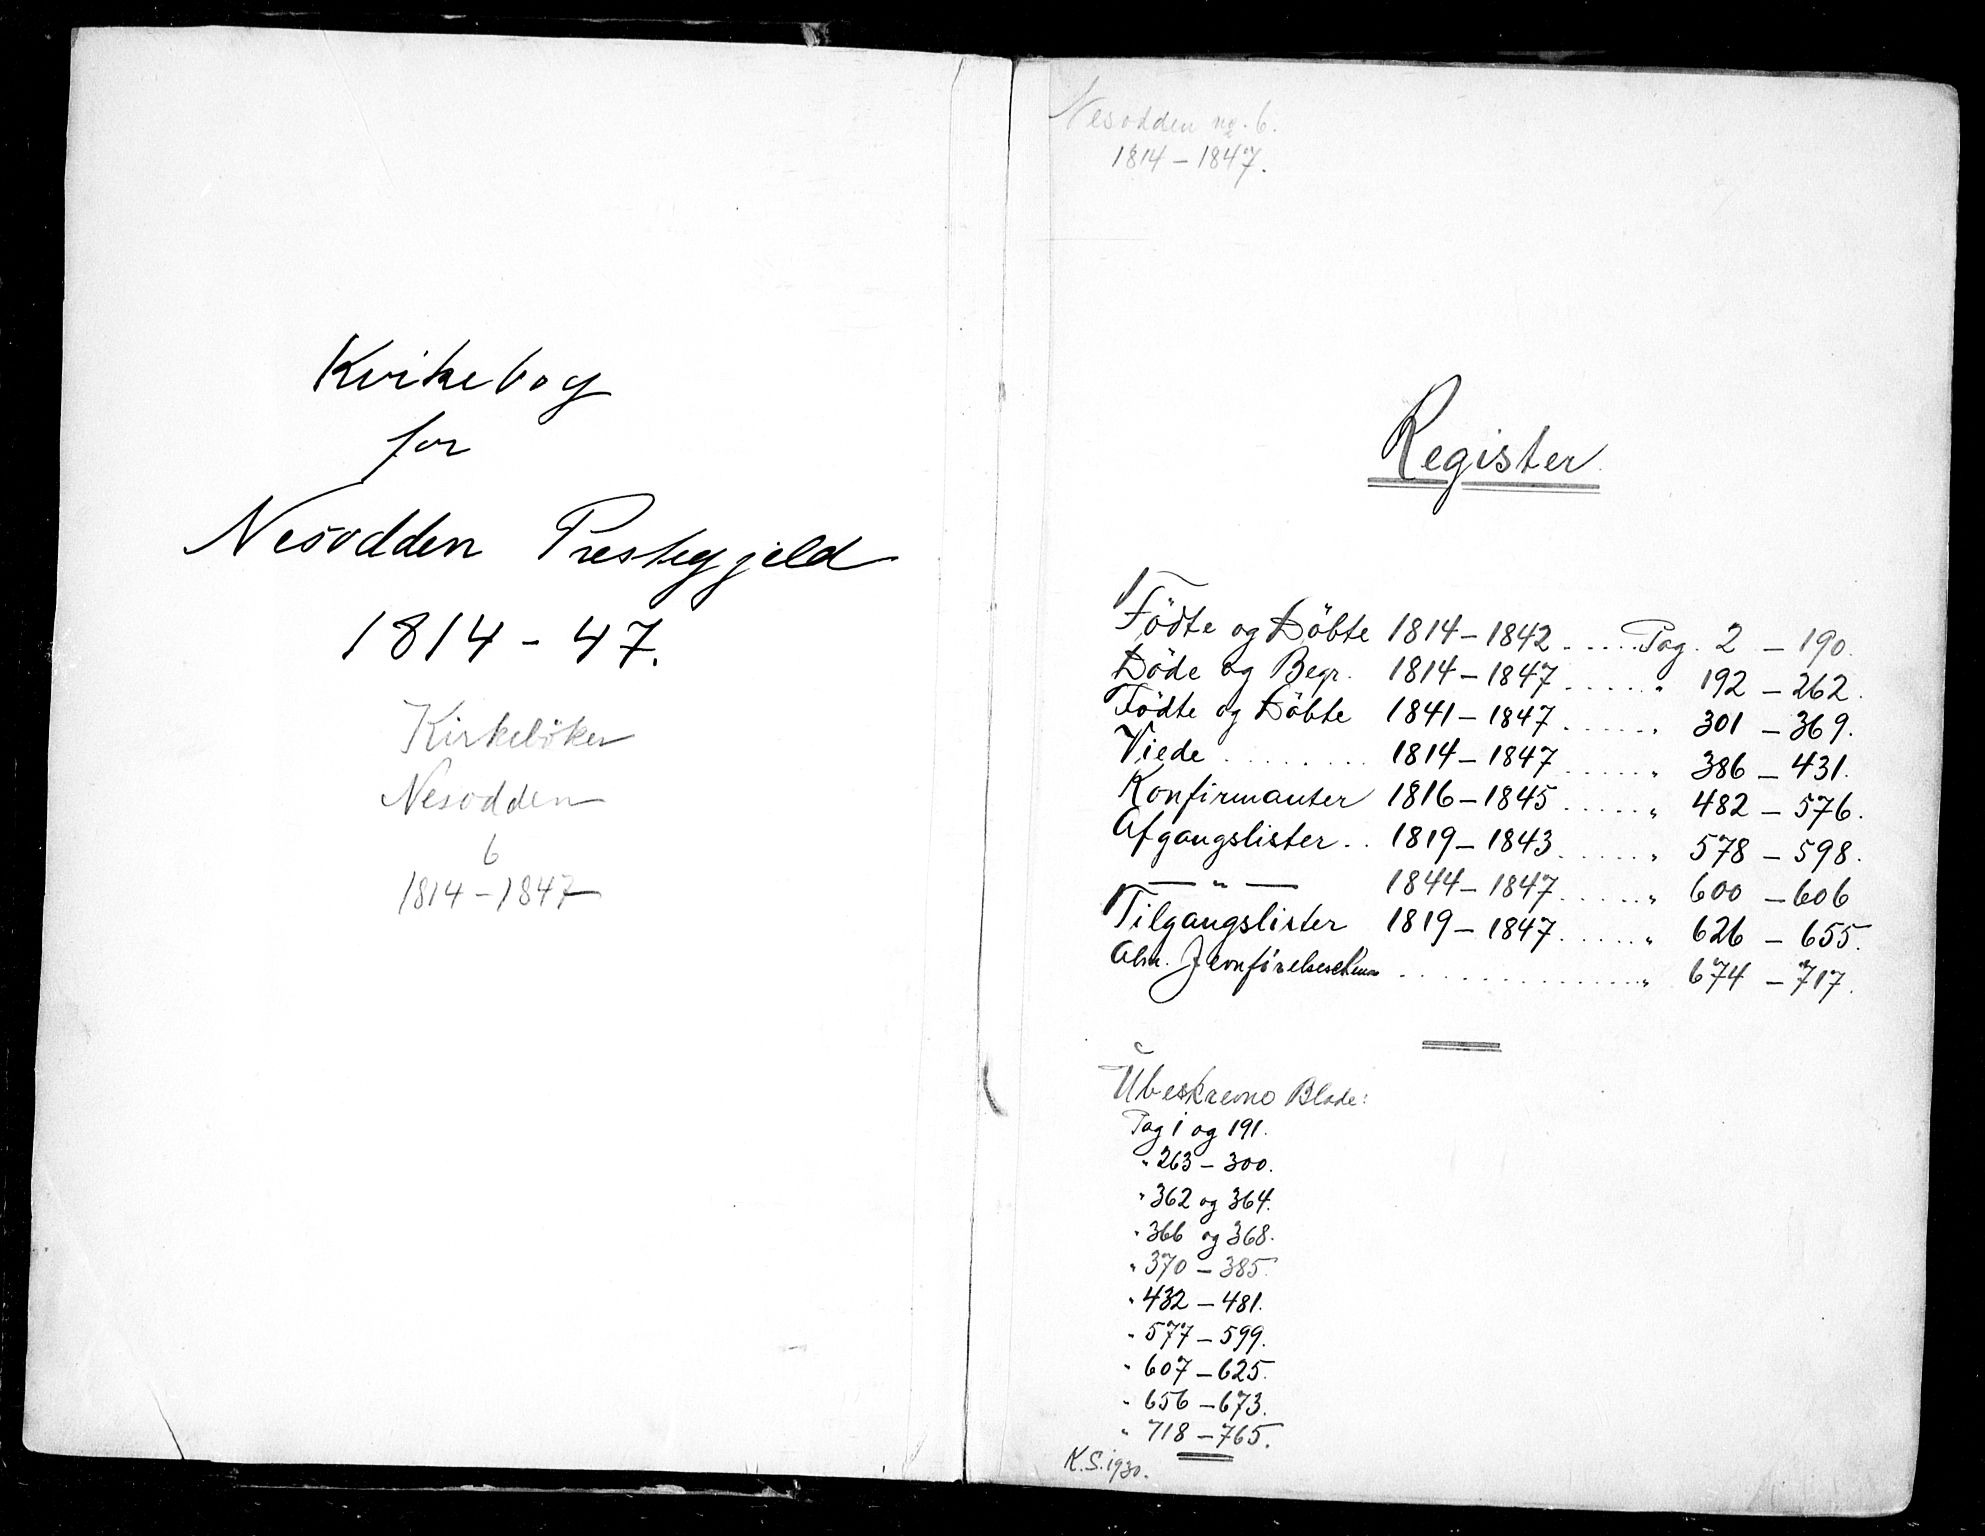 Kirkebog
for
Nesodden Prestegjeld
1814 - 47.
Kirkebøker
Nesodden
6
1814 - 1847
Nesodden nr. 6.
1814 - 1847.
Register
Födte og Döbte 1814 - 1842 ..... Pag. 2 - 190.
Döde og Begr. 1814 - 1847 ..... " 192 - 262.
Födte og Döbte 1841 - 1847 ..... " 301 - 369.
Viede ........ 1814 - 1847 ..... " 386 - 431.
Konfirmanter 1816 - 1845 ..... " 482 - 576.
Afgangslister .. 1819 - 1843 ..... " 578 - 598.
— " — 1844 - 1847 ..... " 600 - 606
Tilgangslister 1819 - 1847 ..... " 626 - 655.
Alm. ............... " 674 - 717.
Ubeskrevne Blade:
Pag 1 og 191.
" 263 - 300.
" 362 og 364.
" 366 og 368.
" 370 - 385.
" 432 - 481.
" 577 - 599.
" 607 - 625.
" 656 - 673.
" 718 - 765.
K.S. 1930.